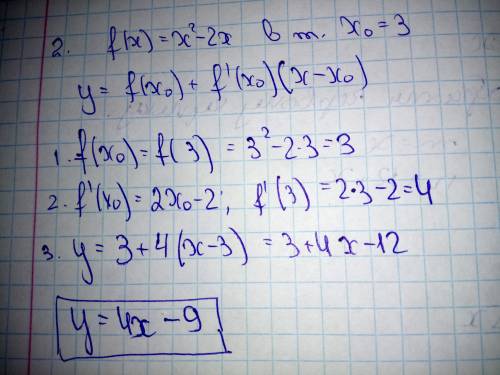 2. f(x) = x²-2x в т. x₀ = 3
y = f(x₀) + f'(x₀)(x-x₀)
1. f(x₀) = f(3) = 3²-2·3 = 3
2. f'(x₀) = 2x₀-2; f'(3) = 2·3-2=4
3. y = 3+4(x-3) = 3+4x-12
y = 4x-9